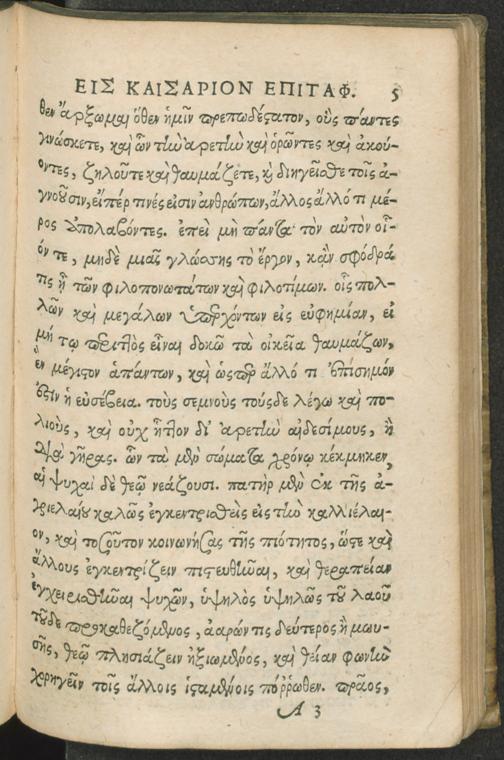 ΕΙΣ ΚΑΙΣΑΡΙΟΝ ΕΠΙΤΑΦ. 5
θεν ἄρξωμαι ὅθεν ἡμῖν πρεπωδέστατον, οὓς πάντες
γινώσκετε, καὶ ὧν τὴν ἀρετὴν καὶ ὁρῶντες καὶ ἀκού-
οντες, ζηλοῦτε καὶ θαυμάζετε, καὶ διηγεῖσθε τοῖς ἀ-
γνοοῦσιν, εἴπέρ τινές εἰσιν ἀνθρώπων, ἄλλος ἄλλό τι μέ-
ρος ὑπολαβόντες. ἐπεὶ μὴ πάντα τὸν αὐτὸν οἷ-
όν τε, μηδὲ μιᾶς γλώσσης τὸ ἔργον, κᾂν σφόδρά
τις ᾖ τῶν φιλοπονωτάτων καὶ φιλοτίμων. οἷς πολ-
λῶν καὶ μεγάλων ὑπαρχόντων εἰς εὐφημίαν, εἰ
μή τῳ περιττὸς εἶναι δοκῶ τὰ οἰκεῖα θαυμάζων,
ἓν μέγιστον ἁπάντων, καὶ ὥσπερ ἄλλό τι ἐπίσημόν
ἐστιν ἡ εὐσέβεια. τοὺς σεμνοὺς τούσδε λέγω καὶ πο-
λιοὺς, καὶ οὐχ ἧττον δι' ἀρετὴν αἰδεσίμους, ἢ
διὰ γῆρας. ὧν τὰ μὲν σώματα χρόνῳ κέκμηκεν,
αἱ ψυχαὶ δὲ θεῷ νεάζουσι. πατὴρ μὲν ἐκ τῆς ἀ-
γριελαίου καλῶς ἐγκεντρισθεὶς εἰς τὴν καλλιέλαι-
ον, καὶ τοσοῦτον κοινωνήσας τῆς πιότητος, ὥστε καὶ
ἄλλους ἐγκεντρίζειν πιστευθῆναι, καὶ θεραπείαν
ἐγχειρισθῆναι ψυχῶν, ὑψηλὸς ὑψηλῶς τοῦ λαοῦ
τοῦδε προκαθεζόμενος, ἀαρών τις δεύτερος ἢ μωυ-
σῆς, θεῷ πλησιάζειν ἠξιωμένος, καὶ θείαν φωνὴν
χορηγεῖν τοῖς ἄλλοις ἱσταμένοις πόῤῥωθεν. πρᾶος,
A 3